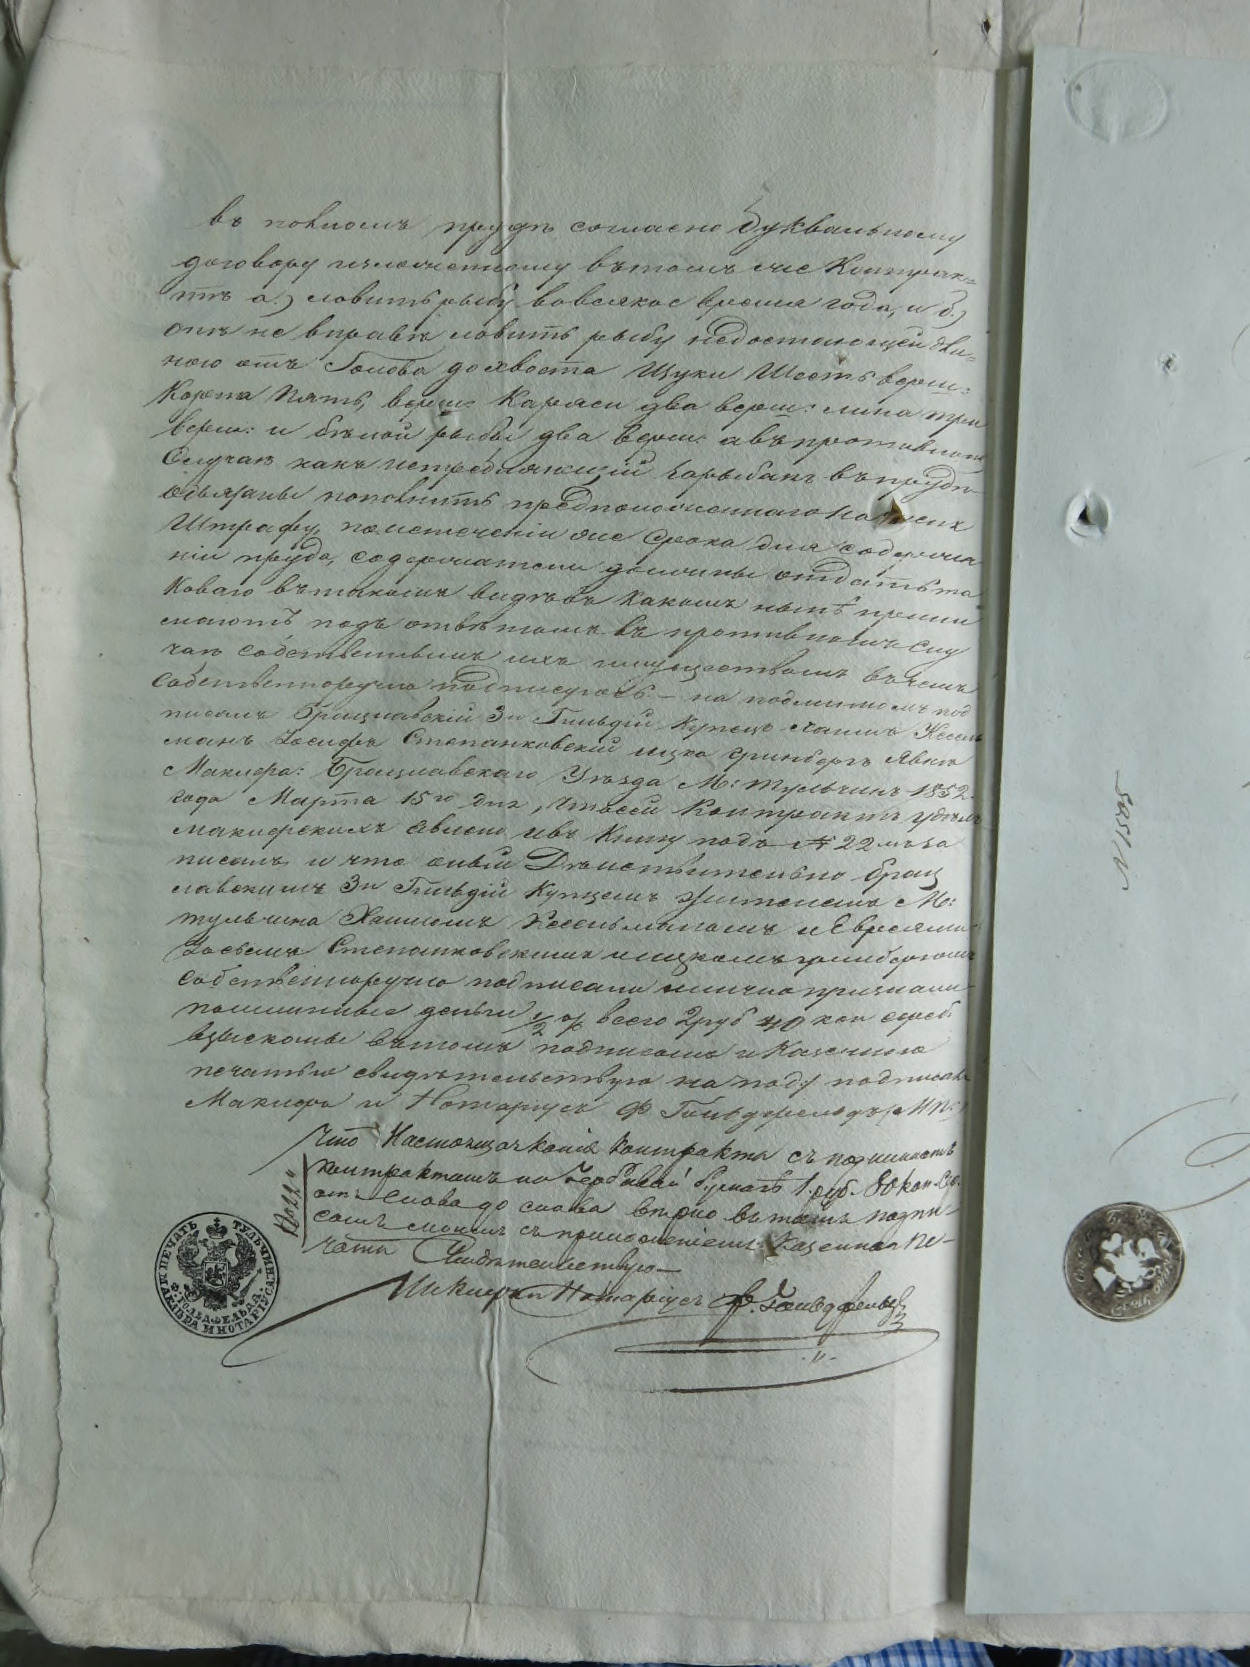 въ повномъ прудѣ согласно буквальному
договору изложенному въ томъ же Контрак-
тѣ а.) ловить рыбу во всякое время года, и б.)
онѣ не вправѣ ловить рыбу недостающей дли-
ною отъ Голова до хвоста Щуки Шесть верш:
Коропа Пять, верш: Караси два верш: лина три
верш: и бѣлой рыбы два верш: а въ противномъ
Случаѣ какъ истребляющій въ прудѣ
обязаны пополнить предположеннаго
Штрафу, по истеченіи же Срока для содержа
ніи пруда, содержатели должны отдать та
коваго въ такомъ видѣ въ какомъ нынѣ прини
маютъ подъ отвѣтомъ въ противномъ слу
чаѣ собственнымъ ихъ имуществомъ въ чемъ
Собственноручно подписуюсь — на подлинномъ под
писалъ Брацлавскій 3й Гильдій Купецъ Хаимъ Кесель
манъ Іосифъ Степанковскій ицко Гринбергъ Явка
Маклера: Брацлавскаго Уѣзда М: Тульчинъ 1852
года Марта 15го дня, что сей Контрактъ у дѣлъ
маклерскихъ явленъ и въ Книгу подъ № 22мъ за
писанъ и что оный Дѣйствительно Брац
лавскимъ 3й Гильдій Купцемъ жителемъ М:
тульчина Хаимомъ Кесельманомъ и Евреями
Іосьемъ Степанковскимъ и ицкомъ гринбергомъ
собственноручно подписали и лично признали
пошлинные деньги ½ % всего 2 руб 40 коп сереб
взысканы въ томъ подписомъ и Казенною
печатью свидѣтельствую на под: подписалъ
Маклеръ и Нотаріусъ Ф Гольдфельдъ (М П:)
Что Настоящая копія контракта съ подлиннымъ
контрактомъ на Гербовой бумагѣ 1. руб. 80 коп. Сер.
отъ Слова до слова вѣрно въ томъ подпи-
сомъ моимъ съ приложеніемъ Казенной Пе-
чати Свидѣтельствую —
Маклеръ и Нотаріусъ Ф. Гольдфельдъ
ПЕЧАТЬ ТУЛЬЧИНСК
МАКЛЕРА И НОТАРІУСА
Ф. ГОЛЬДФЕЛЬДА
N 1505